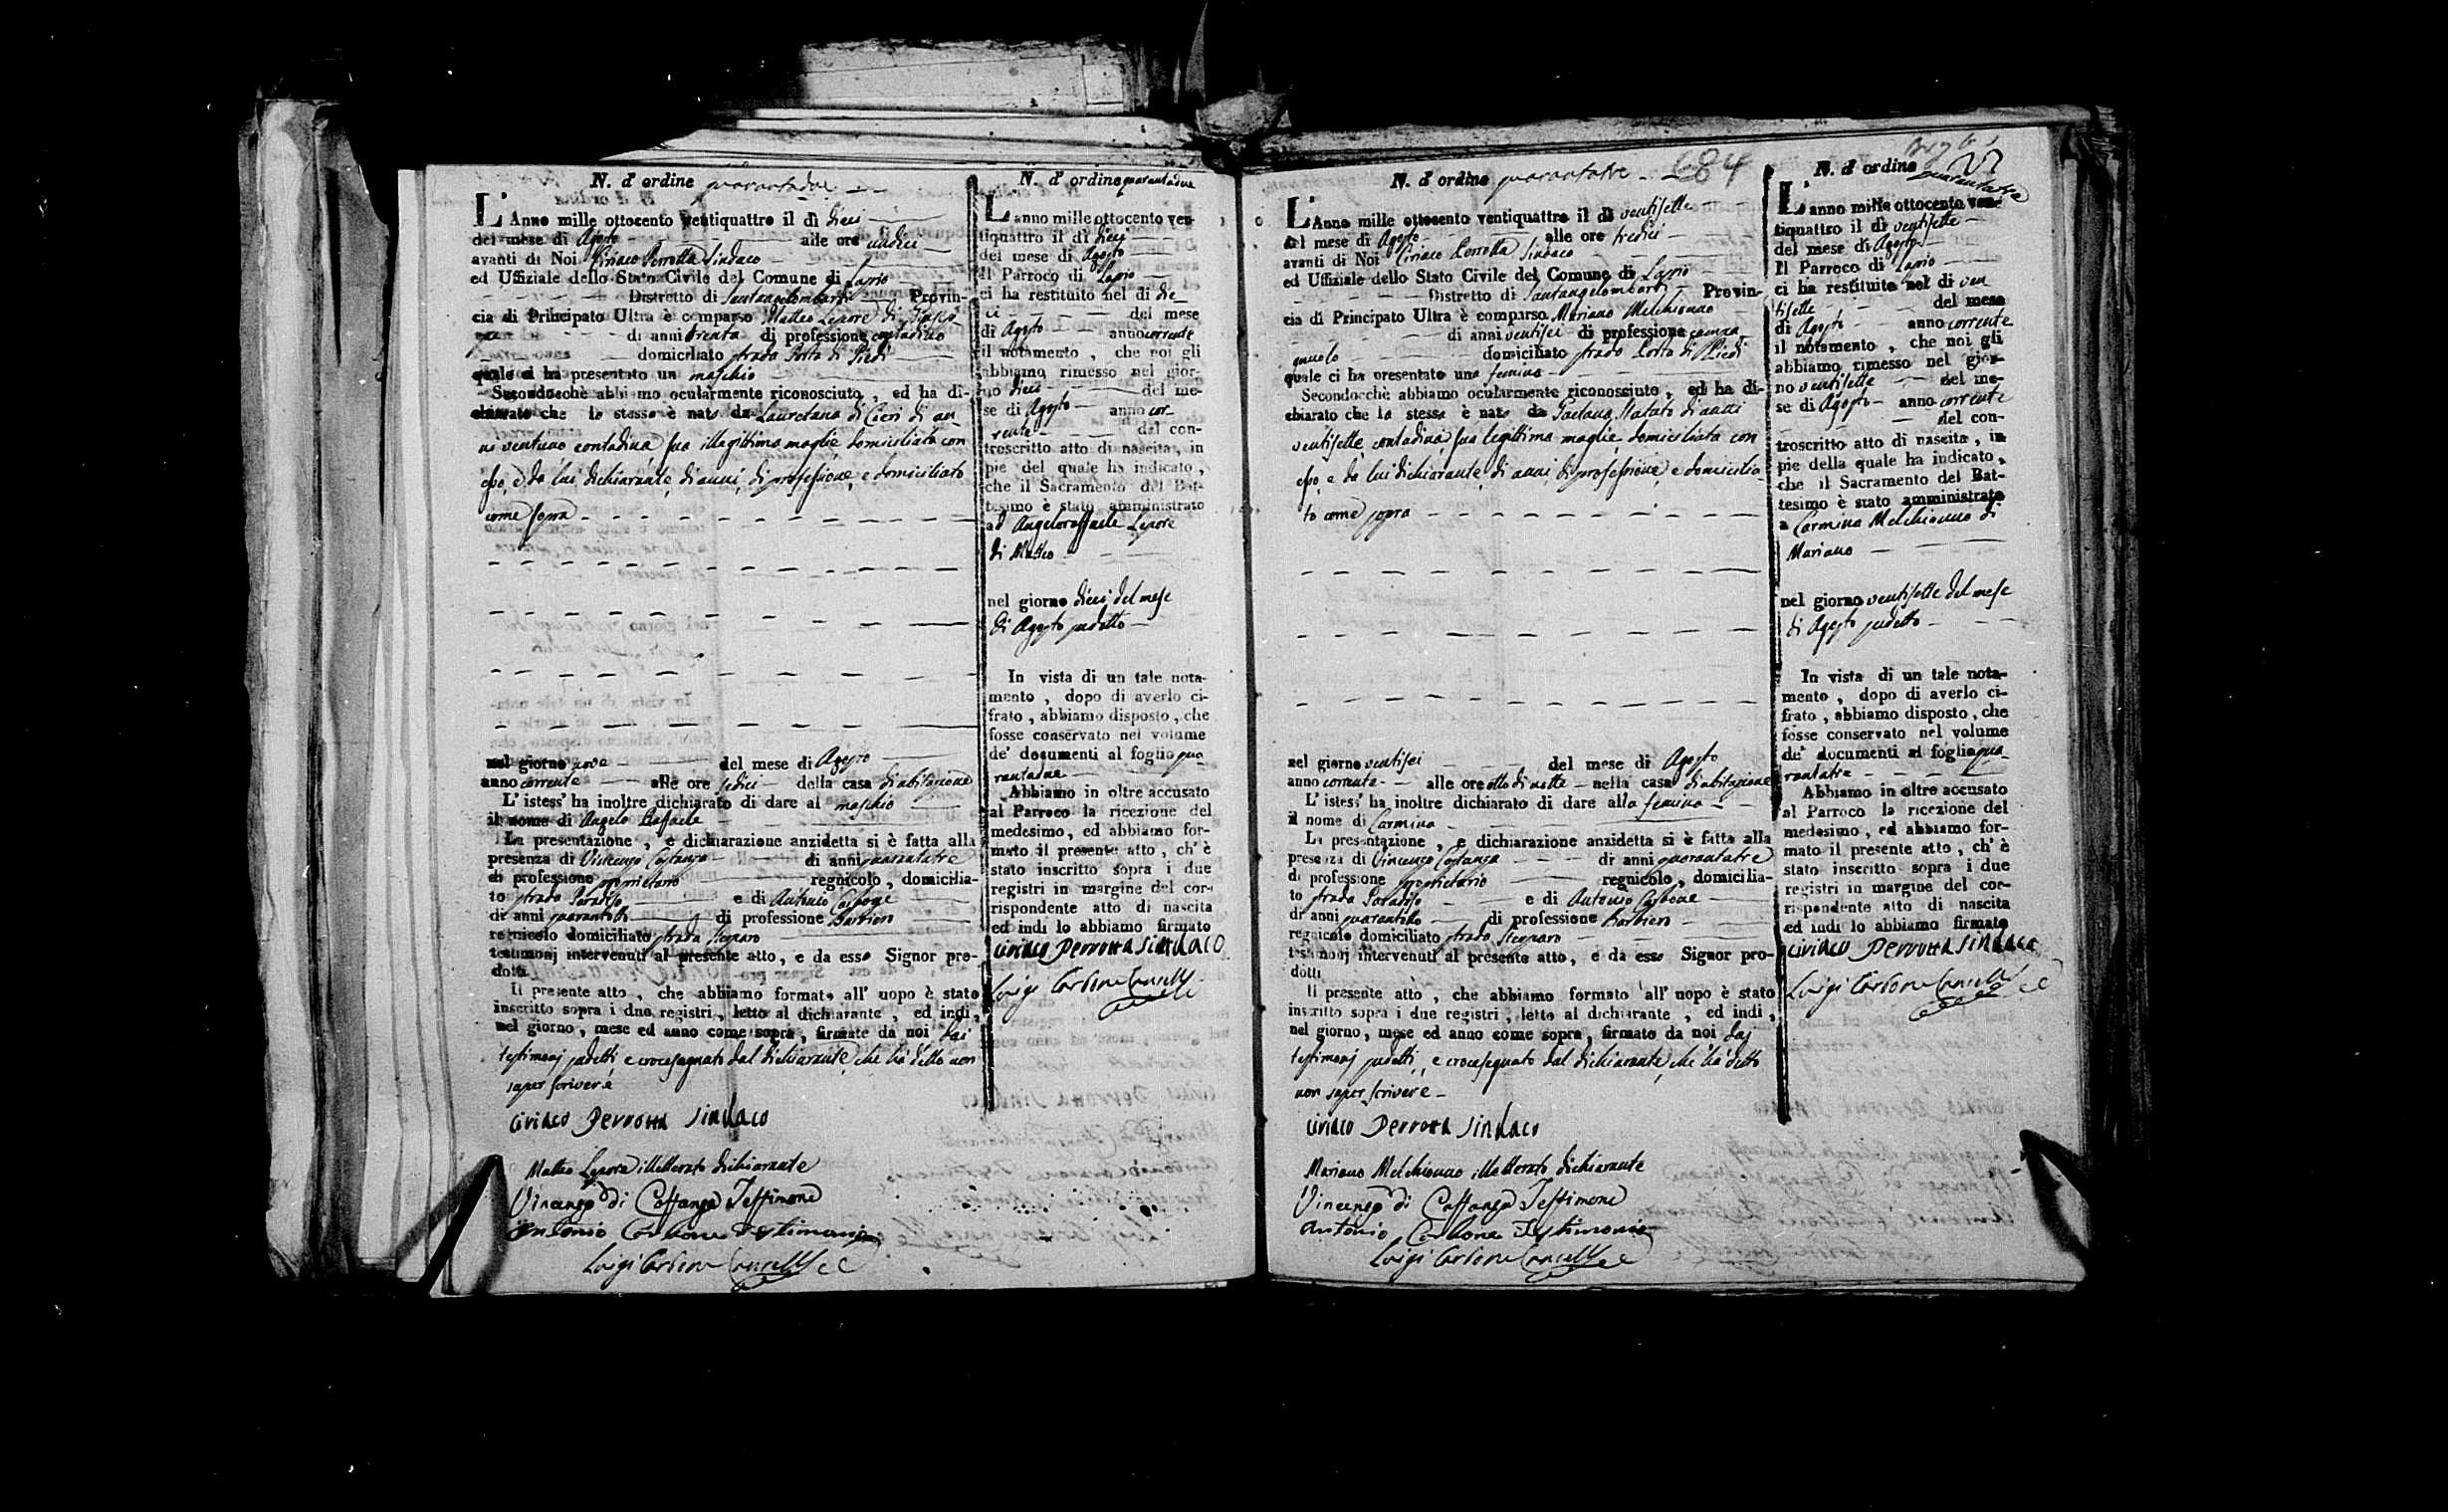 N. d' ordine quarantadue
L' Anno mille ottocento ventiquattro il dì dieci
del mese di Agosto alle ore undici
avanti di Noi Ciriaco Perrotta Sindaco
ed Uffiziale dello Stato Civile del Comune di Lapio
Distretto di Santangelombardi Provin-
cia di Principato Ultra è comparso Matteo Lepore di
di anni trenta di professione contadino
domiciliato strada Porta di Piedi
quale ci ha presentato un maschio
Secondocchè abbiamo ocularmente riconosciuto, ed ha di-
chiarato che lo stesso è nato da Lauretana di Cieri di an
ni ventuno contadina, sua illegittima moglie, domiciliata con
esso, e da lui dichiarante, di anni, di professione, e domiciliato
come sopra
nel giorno nove del mese di Agosto
anno corrente alle ore sedici della casa di abitazione
L' istess' ha inoltre dichiarato di dare al maschio
il nome di Angelo Raffaele
La presentazione, e dichiarazione anzidetta si è fatta alla
presenza di Vincenzo Costanza di anni quarantatre
di professione proprietario regnicolo, domicilia-
to strada Paradiso e di Antonio Carbone
di anni quarantotto di professione Barbiero
regnicolo domiciliato strada
testimonj intervenuti al presente atto, e da esso Signor pro-
dotti.
Il presente atto, che abbiamo formato all' uopo è stato
inscritto sopra i due registri, letto al dichiarante, ed indi,
nel giorno, mese ed anno come sopra, firmato da noi dai
testimonj sudetti, e crocesegnato dal dichiarante, che ha detto non
saper scrivere
Ciriaco Perrotta Sindaco
Matteo Lepore illetterato dichiarante
Vincenzo di Costanza Testimone
Antonio Carbone Testimonio
Luigi Carbone Cancell.e
N. d' ordine quarantadue
L' anno mille ottocento ven-
tiquattro il dì dieci
del mese di Agosto
Il Parroco di Lapio
ci ha restituito nel dì die
ci del mese
di Agosto anno corrente
il notamento, che noi gli
abbiamo rimesso nel gior-
no dieci del me-
se di Agosto anno cor
rente del con-
troscritto atto di nascita, in
pie del quale ha indicato,
che il Sacramento del Bat-
tesimo è stato amministrato
ad Angeloraffaele Lepore
di Matteo
nel giorno dieci del mese
di Agosto sudetto
In vista di un tale nota-
mento, dopo di averlo ci-
frato, abbiamo disposto, che
fosse conservato nel volume
de' documenti al foglio qua
rantadue
Abbiamo in oltre accusato
al Parroco la ricezione del
medesimo, ed abbiamo for-
mato il presente atto, ch' è
stato inscritto sopra i due
registri in margine del cor-
rispondente atto di nascita
ed indi lo abbiamo firmato
Ciriaco Perrotta Sindaco
Luigi Carbone Cancell.e
N. d' ordine quarantatre 684
L' Anno mille ottocento ventiquattro il dì ventisette
del mese di Agosto alle ore tredici
avanti di Noi Ciriaco Perrotta Sindaco
ed Uffiziale dello Stato Civile del Comune di Lapio
Distretto di Santangelombardi Provin-
cia di Principato Ultra è comparso Mariano Melchionno
di anni ventisei di professione
domiciliato strada Porta di Piedi
quale ci ha presentato una femina
Secondocchè abbiamo ocularmente riconosciuto, ed ha di-
chiarato che la stessa è nata da Gaetana Statuto di anni
ventisette, contadina, sua legittima moglie, domiciliata con
esso, e da lui dichiarante, di anni, di professione, e domicilia
to come sopra
nel giorno ventisei del mese di Agosto
anno corrente alle ore otto di notte nella casa di abitazione
L' istess' ha inoltre dichiarato di dare alla femina
il nome di Carmina
La presentazione, e dichiarazione anzidetta si è fatta alla
presenza di Vincenzo Costanza di anni quarantatre
di professione proprietario regnicolo, domicilia-
to strada Paradiso e di Antonio Carbone
di anni quarantotto di professione Barbiero
regnicolo domiciliato strada
testimonj intervenuti al presente atto, e da esso Signor pro-
dotti
Il presente atto, che abbiamo formato all' uopo è stato
inscritto sopra i due registri, letto al dichiarante, ed indi,
nel giorno, mese ed anno come sopra, firmato da noi dai
testimonj sudetti, e crocesegnato dal dichiarante, che ha detto
non saper scrivere
Ciriaco Perrotta Sindaco
Mariano Melchionno illetterato dichiarante
Vincenzo di Costanza Testimone
Antonio Carbone Testimonio
Luigi Carbone Cancell.e
N. d' ordine
quarantatre
L' anno mille ottocento ven-
tiquattro il dì ventisette
del mese di Agosto
Il Parroco di Lapio
ci ha restituito nel dì ven
tisette del mese
di Agosto anno corrente
il notamento, che noi gli
abbiamo rimesso nel gior-
no ventisette del me-
se di Agosto anno corrente
del con-
troscritto atto di nascita, in
pie della quale ha indicato,
che il Sacramento del Bat-
tesimo è stato amministrato
a Carmina Melchionno di
Mariano
nel giorno ventisette del mese
di Agosto sudetto
In vista di un tale nota-
mento, dopo di averlo ci-
frato, abbiamo disposto, che
fosse conservato nel volume
de' documenti al foglio qua-
rantatre
Abbiamo in oltre accusato
al Parroco la ricezione del
medesimo, ed abbiamo for-
mato il presente atto, ch' è
stato inscritto sopra i due
registri in margine del cor-
rispondente atto di nascita
ed indi lo abbiamo firmato
Ciriaco Perrotta Sindaco
Luigi Carbone Cancell.e